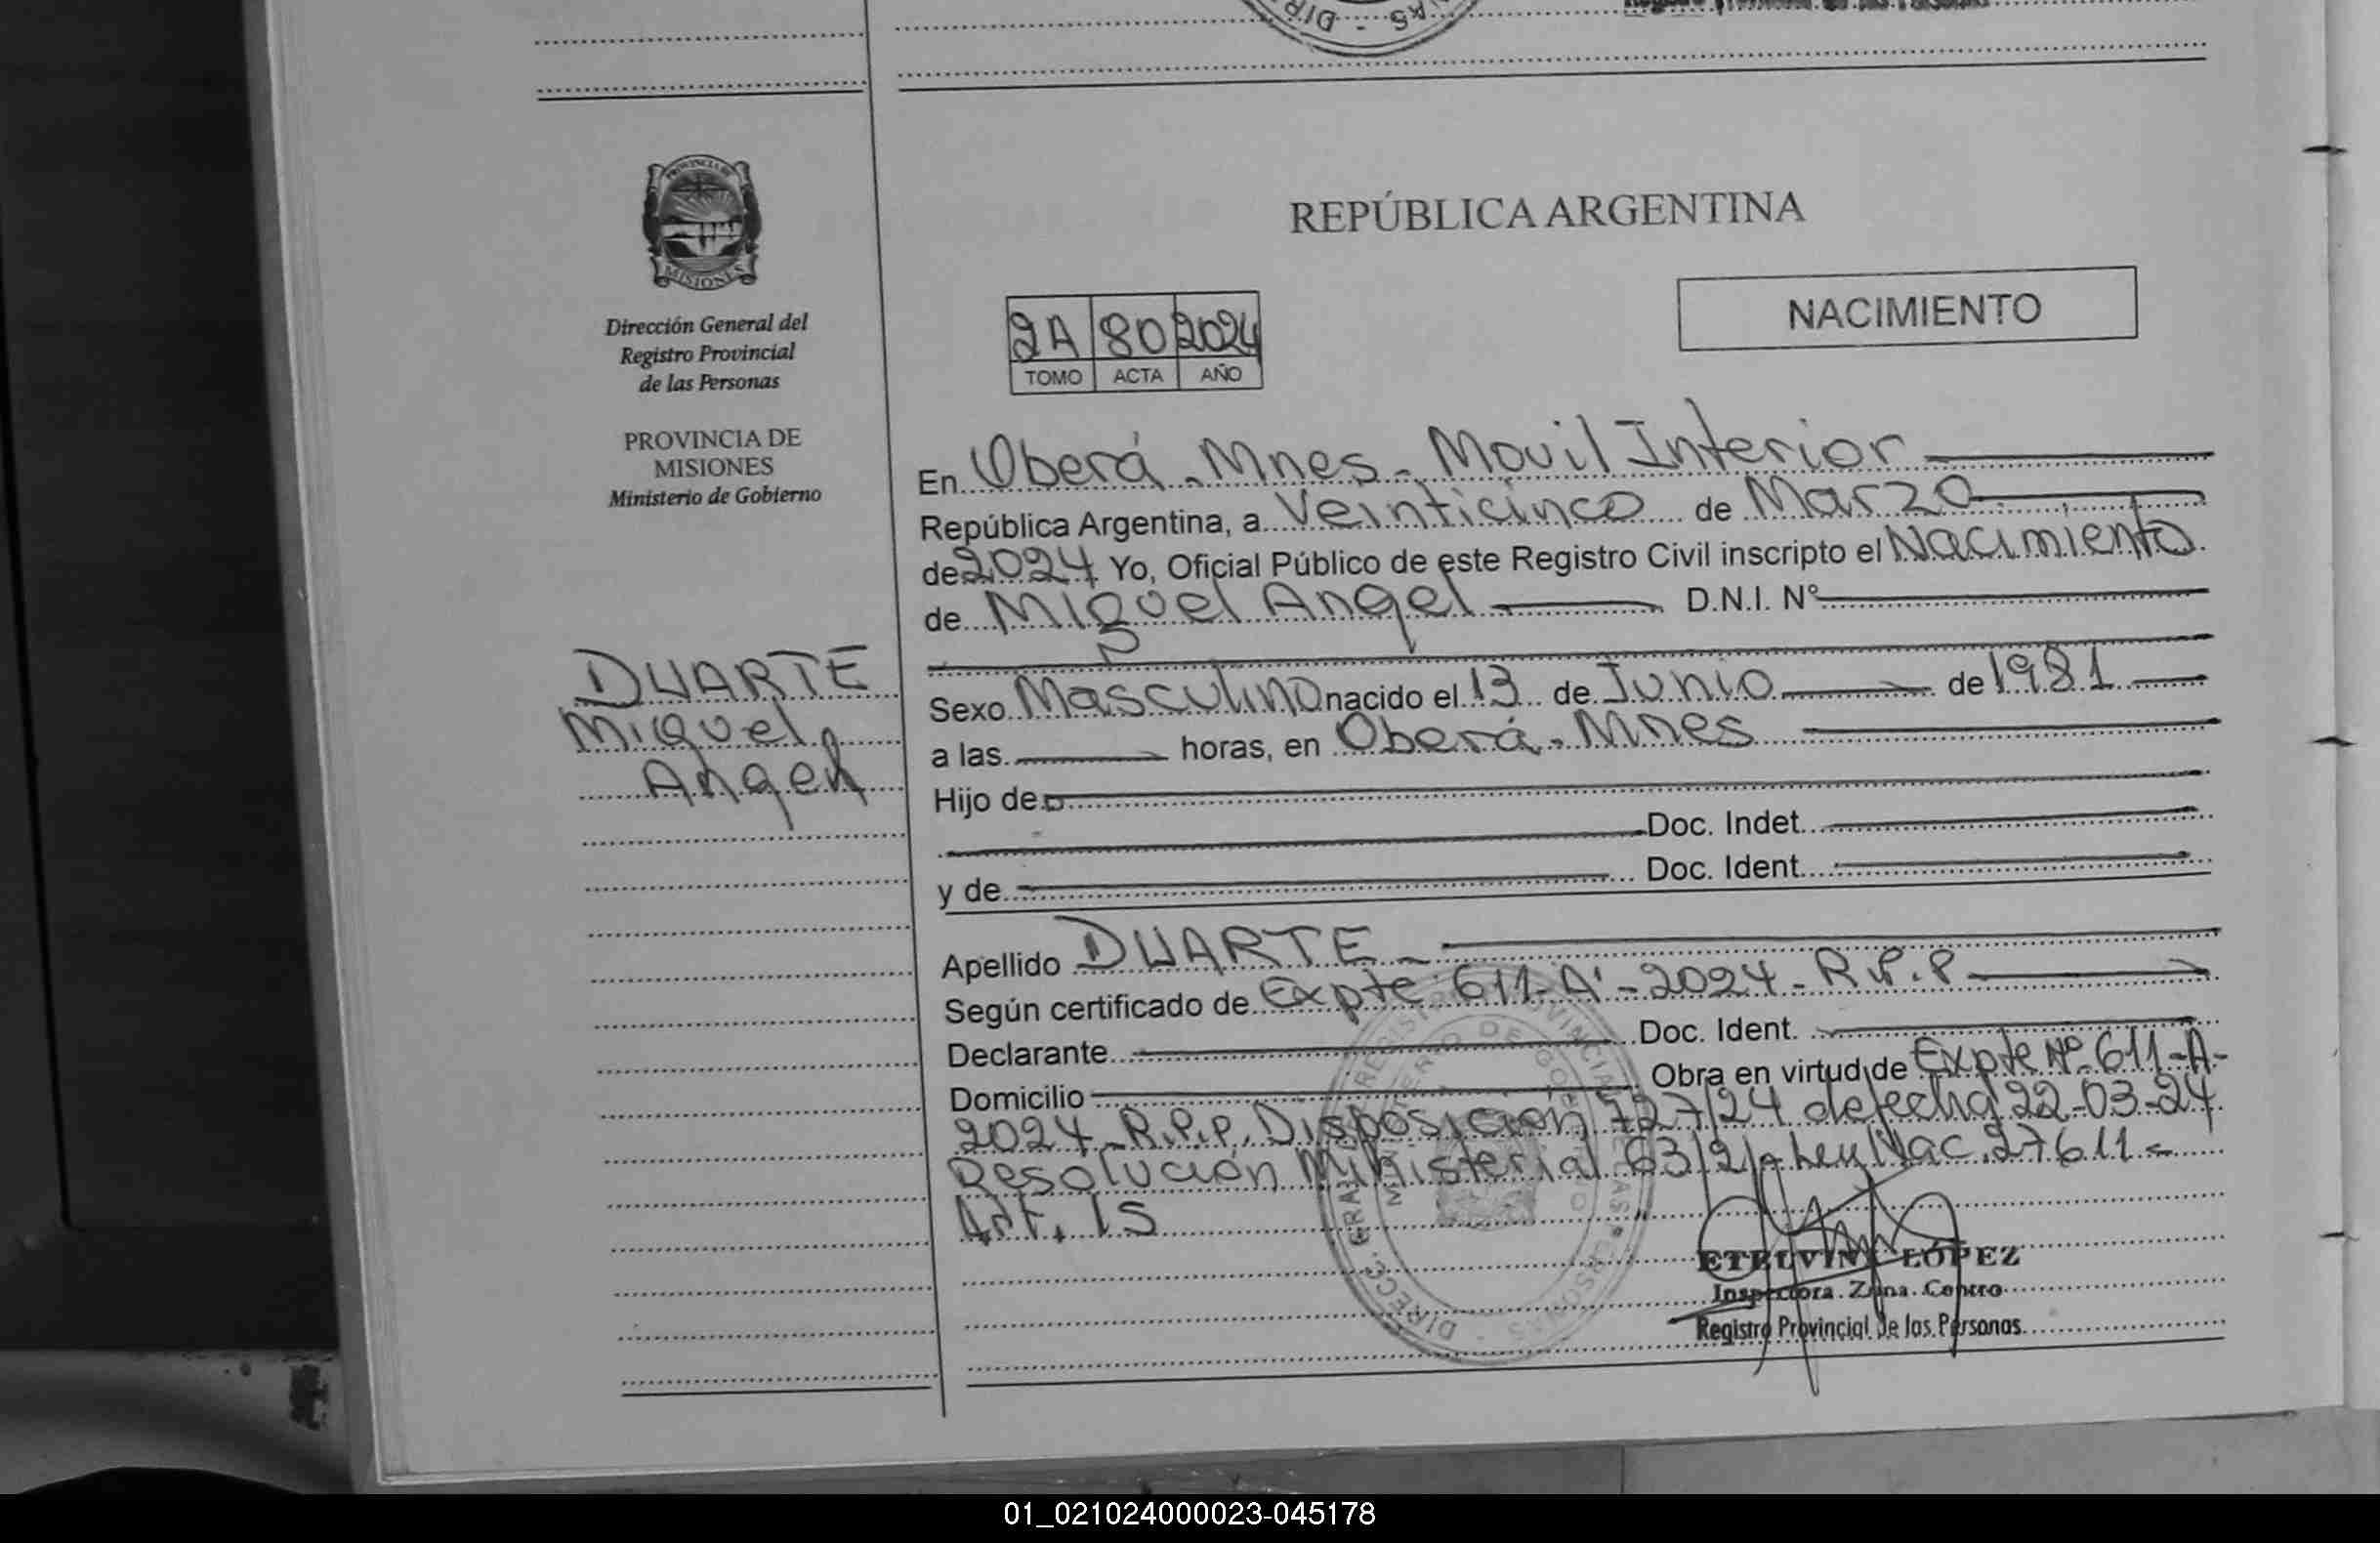 REPÚBLICA ARGENTINA
NACIMIENTO
PROVINCIA DE
MISIONES
Dirección General del
Registro Provincial
de las Personas
PROVINCIA DE
MISIONES
Ministerio de Gobierno
DUARTE
Miguel
Angel
2A 80 2024
TOMO ACTA AÑO
En Oberá - Mnes - Movil Interior
República Argentina, a Veinticinco de Marzo
de 2024 Yo, Oficial Público de este Registro Civil inscripto el Nacimiento
de Miguel Angel D.N.I. Nº
Sexo Masculino nacido el 13 de Junio de 1981
a las horas, en Oberá - Mnes
Hijo de
Doc. Indet.
y de Doc. Ident.
Apellido DUARTE -
Según certificado de Expte 611-A'-2024 - R.P.P
Declarante Doc. Ident.
Domicilio Obra en virtud de Expte Nº 611-A-
2024 - R.P.P. Disposición 727/24 de fecha 22-03-24
Resolución Ministerial 63/21 Ley Nac. 27611 -
Art. 15
ETELVINA LÓPEZ
Inspectora Zona Centro
Registro Provincial de las Personas
01_021024000023-045178